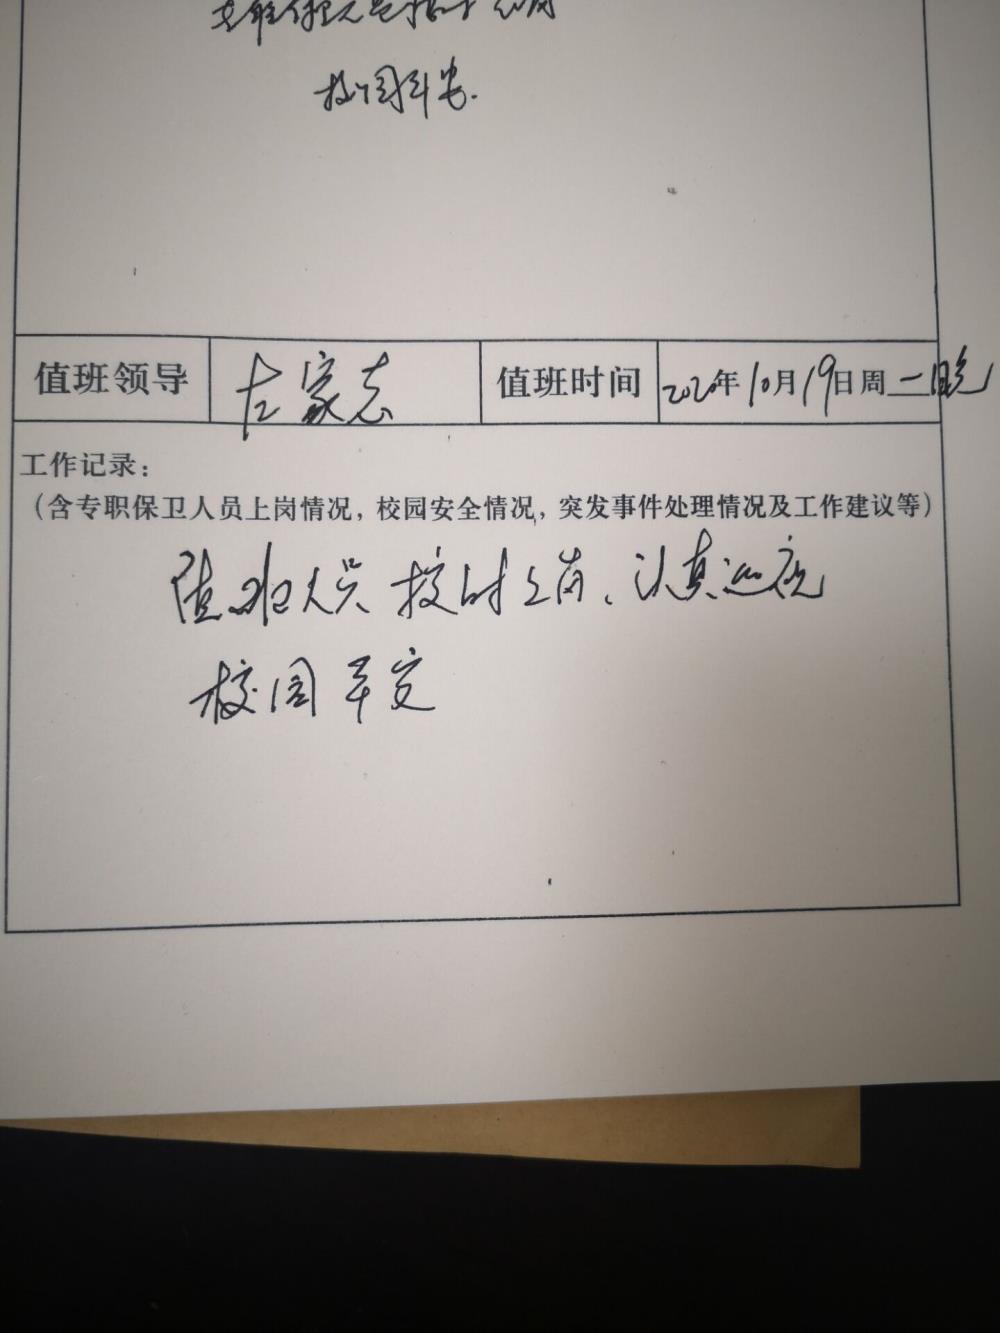 专职保卫人员按时上岗
校园平安.
值班领导 左家志 值班时间 2020年10月19日周一晚
工作记录:
(含专职保卫人员上岗情况, 校园安全情况, 突发事件处理情况及工作建议等)
值班人员按时上岗、认真巡视
校园平安